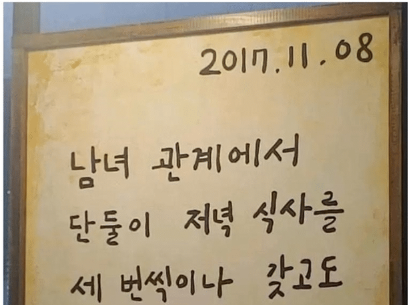 2017.11.08
남녀 관계에서
단둘이 저녁 식사를
세 번씩이나 갖고도